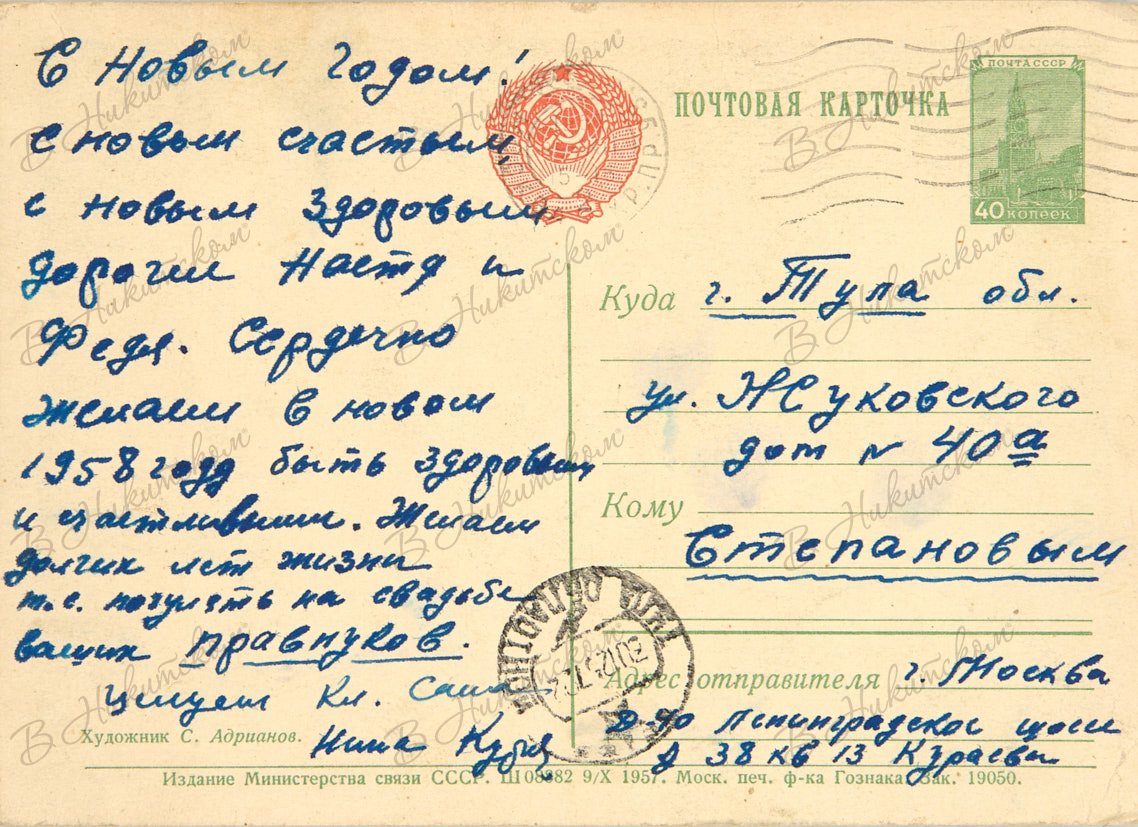 С Новым Годом!
с новым счастьем,
с новым здоровьем
дорогие Настя и
Федя. Сердечно
желаем в новом
1958 году быть здоровыми
и счастливыми. Желаем
долгих лет жизни
т.е. погулять на свадьбе
ваших правнуков.
Целуем Кл. Саша
Нина
Художник С. Адрианов.
ПОЧТОВАЯ КАРТОЧКА
ПОЧТА СССР
40 КОПЕЕК
Куда г. Тула обл.
ул. Жуковского
дом № 40а
Кому
Степановым
Адрес отправителя г. Москва
Ленинградское шоссе
д 38 кв 13 Кураевы
Издание Министерства связи СССР. Ш08882 9/X 1957. Моск. печ. ф-ка Гознака. Зак. 19050.
В Никитском